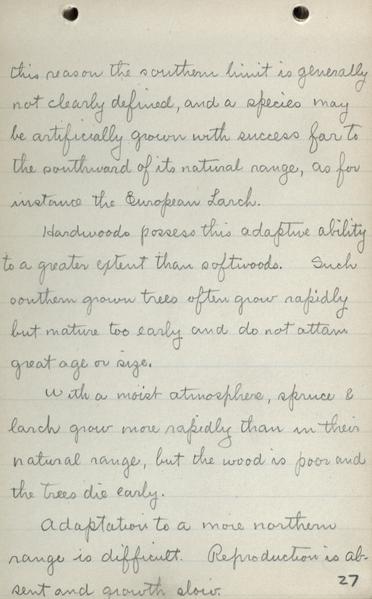 this reason the southern limit is generally
not clearly defined, and a species may
be artificially grown with success far to
the southward of its natural range, as for
instance the European Larch.
Hardwoods possess this adaptive ability
to a greater extent than softwoods. Such
southern grown trees often grow rapidly
but mature too early and do not attain
great age or size.
With a moist atmosphere, spruce &
larch grow more rapidly than in their
natural range, but the wood is poor and
the trees die early.
Adaptation to a more northern
range is difficult. Reproduction is ab-
sent and growth slow.
27